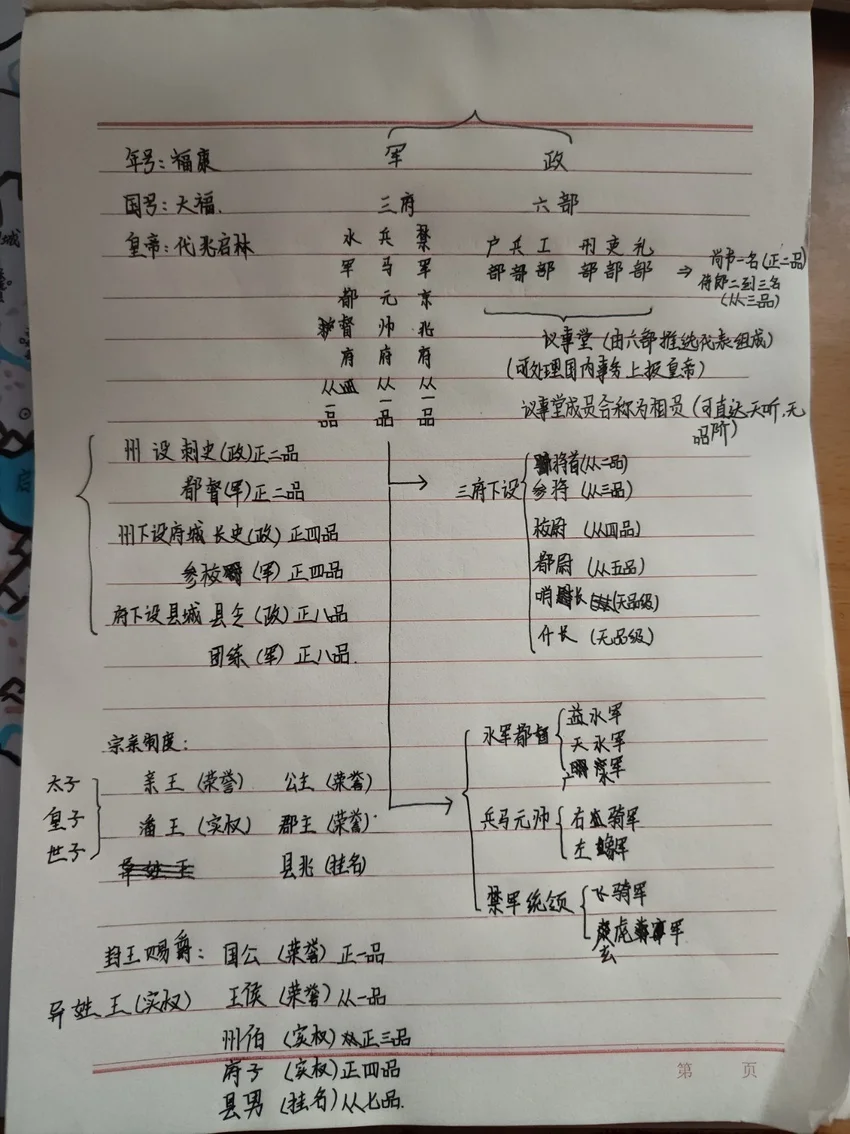 军 政
年号：福康
国号：大福.
皇帝：代兆启林
三府
六部
水军都督府 从一品
兵马元帅府 从一品
禁军京兆府 从一品
户部 兵部 工部 刑部 吏部 礼部
⇒ 尚书一名(正二品)
侍郎二到三名
(从三品)
议事堂(由六部推选代表组成)
(可处理国内事务上报皇帝)
议事堂成员合称为相员(可直达天听,无
品阶)
州设刺史(政)正二品
都督(军)正二品
州下设府城 长史(政) 正四品
参校(军) 正四品
府下设县城 县令(政) 正八品
团练(军) 正八品.
三府下设
将首(从二品)
参将 (从三品)
校尉 (从四品)
都尉 (从五品)
哨长(无品级)
什长 (无品级)
宗亲制度：
太子
皇子
世子
亲王 (荣誉) 公主 (荣誉)
潘王 (实权) 郡主 (荣誉)
县兆 (挂名)
水军都督
益水军
天水军
广
军
兵马元帅
右 骑军
左 军
禁军统领
飞骑军
玄虎 军
封王赐爵：国公 (荣誉) 正一品
异姓王(实权) 王侯 (荣誉) 从一品
州伯 (实权) 正三品
府子 (实权) 正四品
县男 (挂名) 从七品.
第 页
启